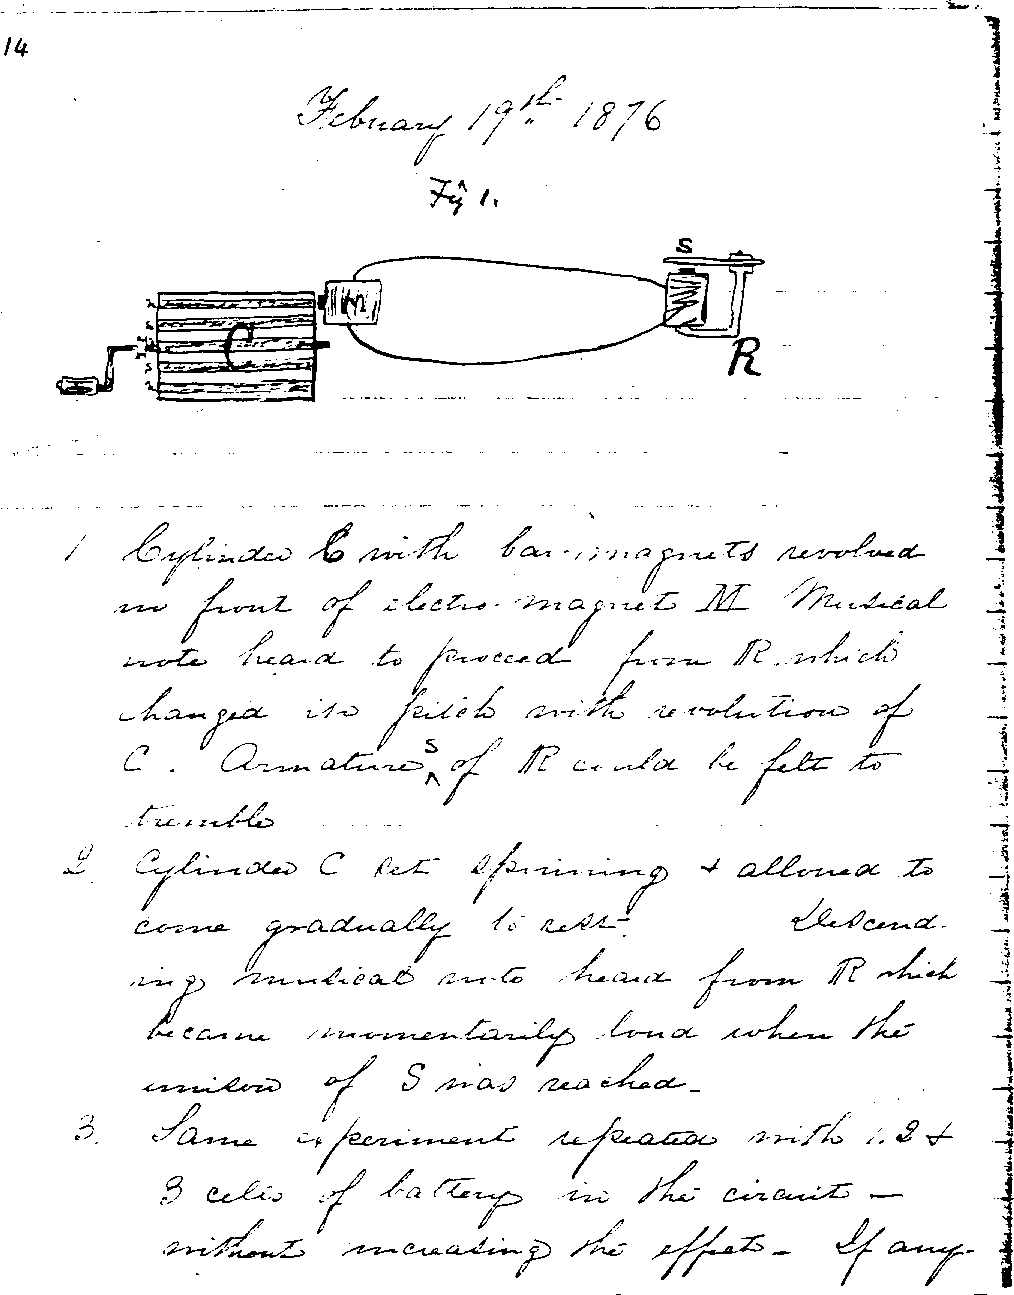 14
February 19th 1876
Fig 1.
S
M
C
R
1 Cylinder C with bar-magnets revolved
in front of electro-magnet M Musical
note heard to proceed from R which
changed its pitch with revolution of
C. Armature S of R could be felt to
tremble
2 Cylinder C set spinning & allowed to
come gradually to rest. Descend-
ing musical note heard from R which
became momentarily loud when the
unison of S was reached -
3. Same experiment repeated with 1. 2 &
3 cells of battery in the circuit -
without increasing the effect - If any-